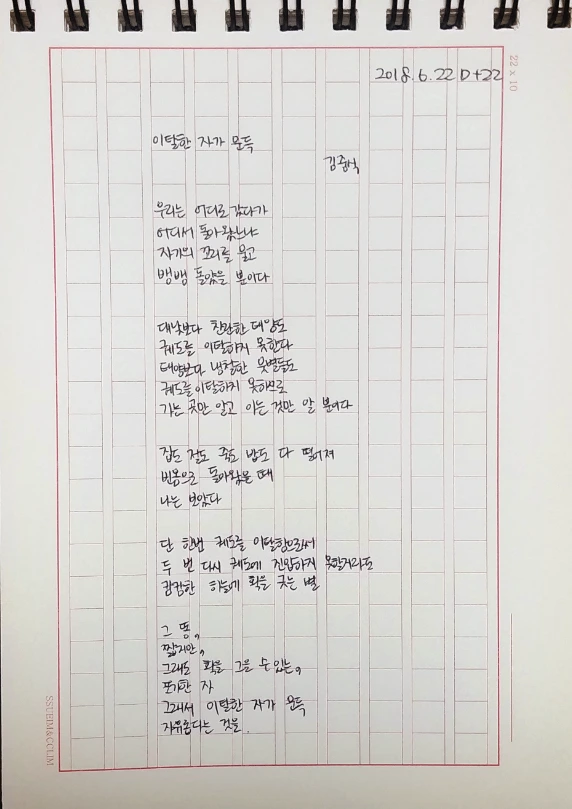 2018.6.22 D+22
22 x 10
이탈한 자가 문득
김중식
우리는 어디로 갔다가
어디서 돌아왔느냐
자기의 꼬리를 물고
뱅뱅 돌았을 뿐이다
대낮보다 찬란한 태양도
궤도를 이탈하지 못한다
태양보다 냉철한 뭇별들도
궤도를 이탈하지 못하므로
가는 곳만 알고 아는 것만 알 뿐이다
집도 절도 죽도 밥도 다 떨어져
빈몸으로 돌아왔을 때
나는 보았다
단 한번 궤도를 이탈함으로써
두 번 다시 궤도에 진입하지 못할지라도
캄캄한 하늘에 획을 긋는 별
그 똥,
짧지만,
그래도 획을 그을 수 있는,
포기한 자
그래서 이탈한 자가 문득
자유롭다는 것을.
SSUEIM&CCLIM